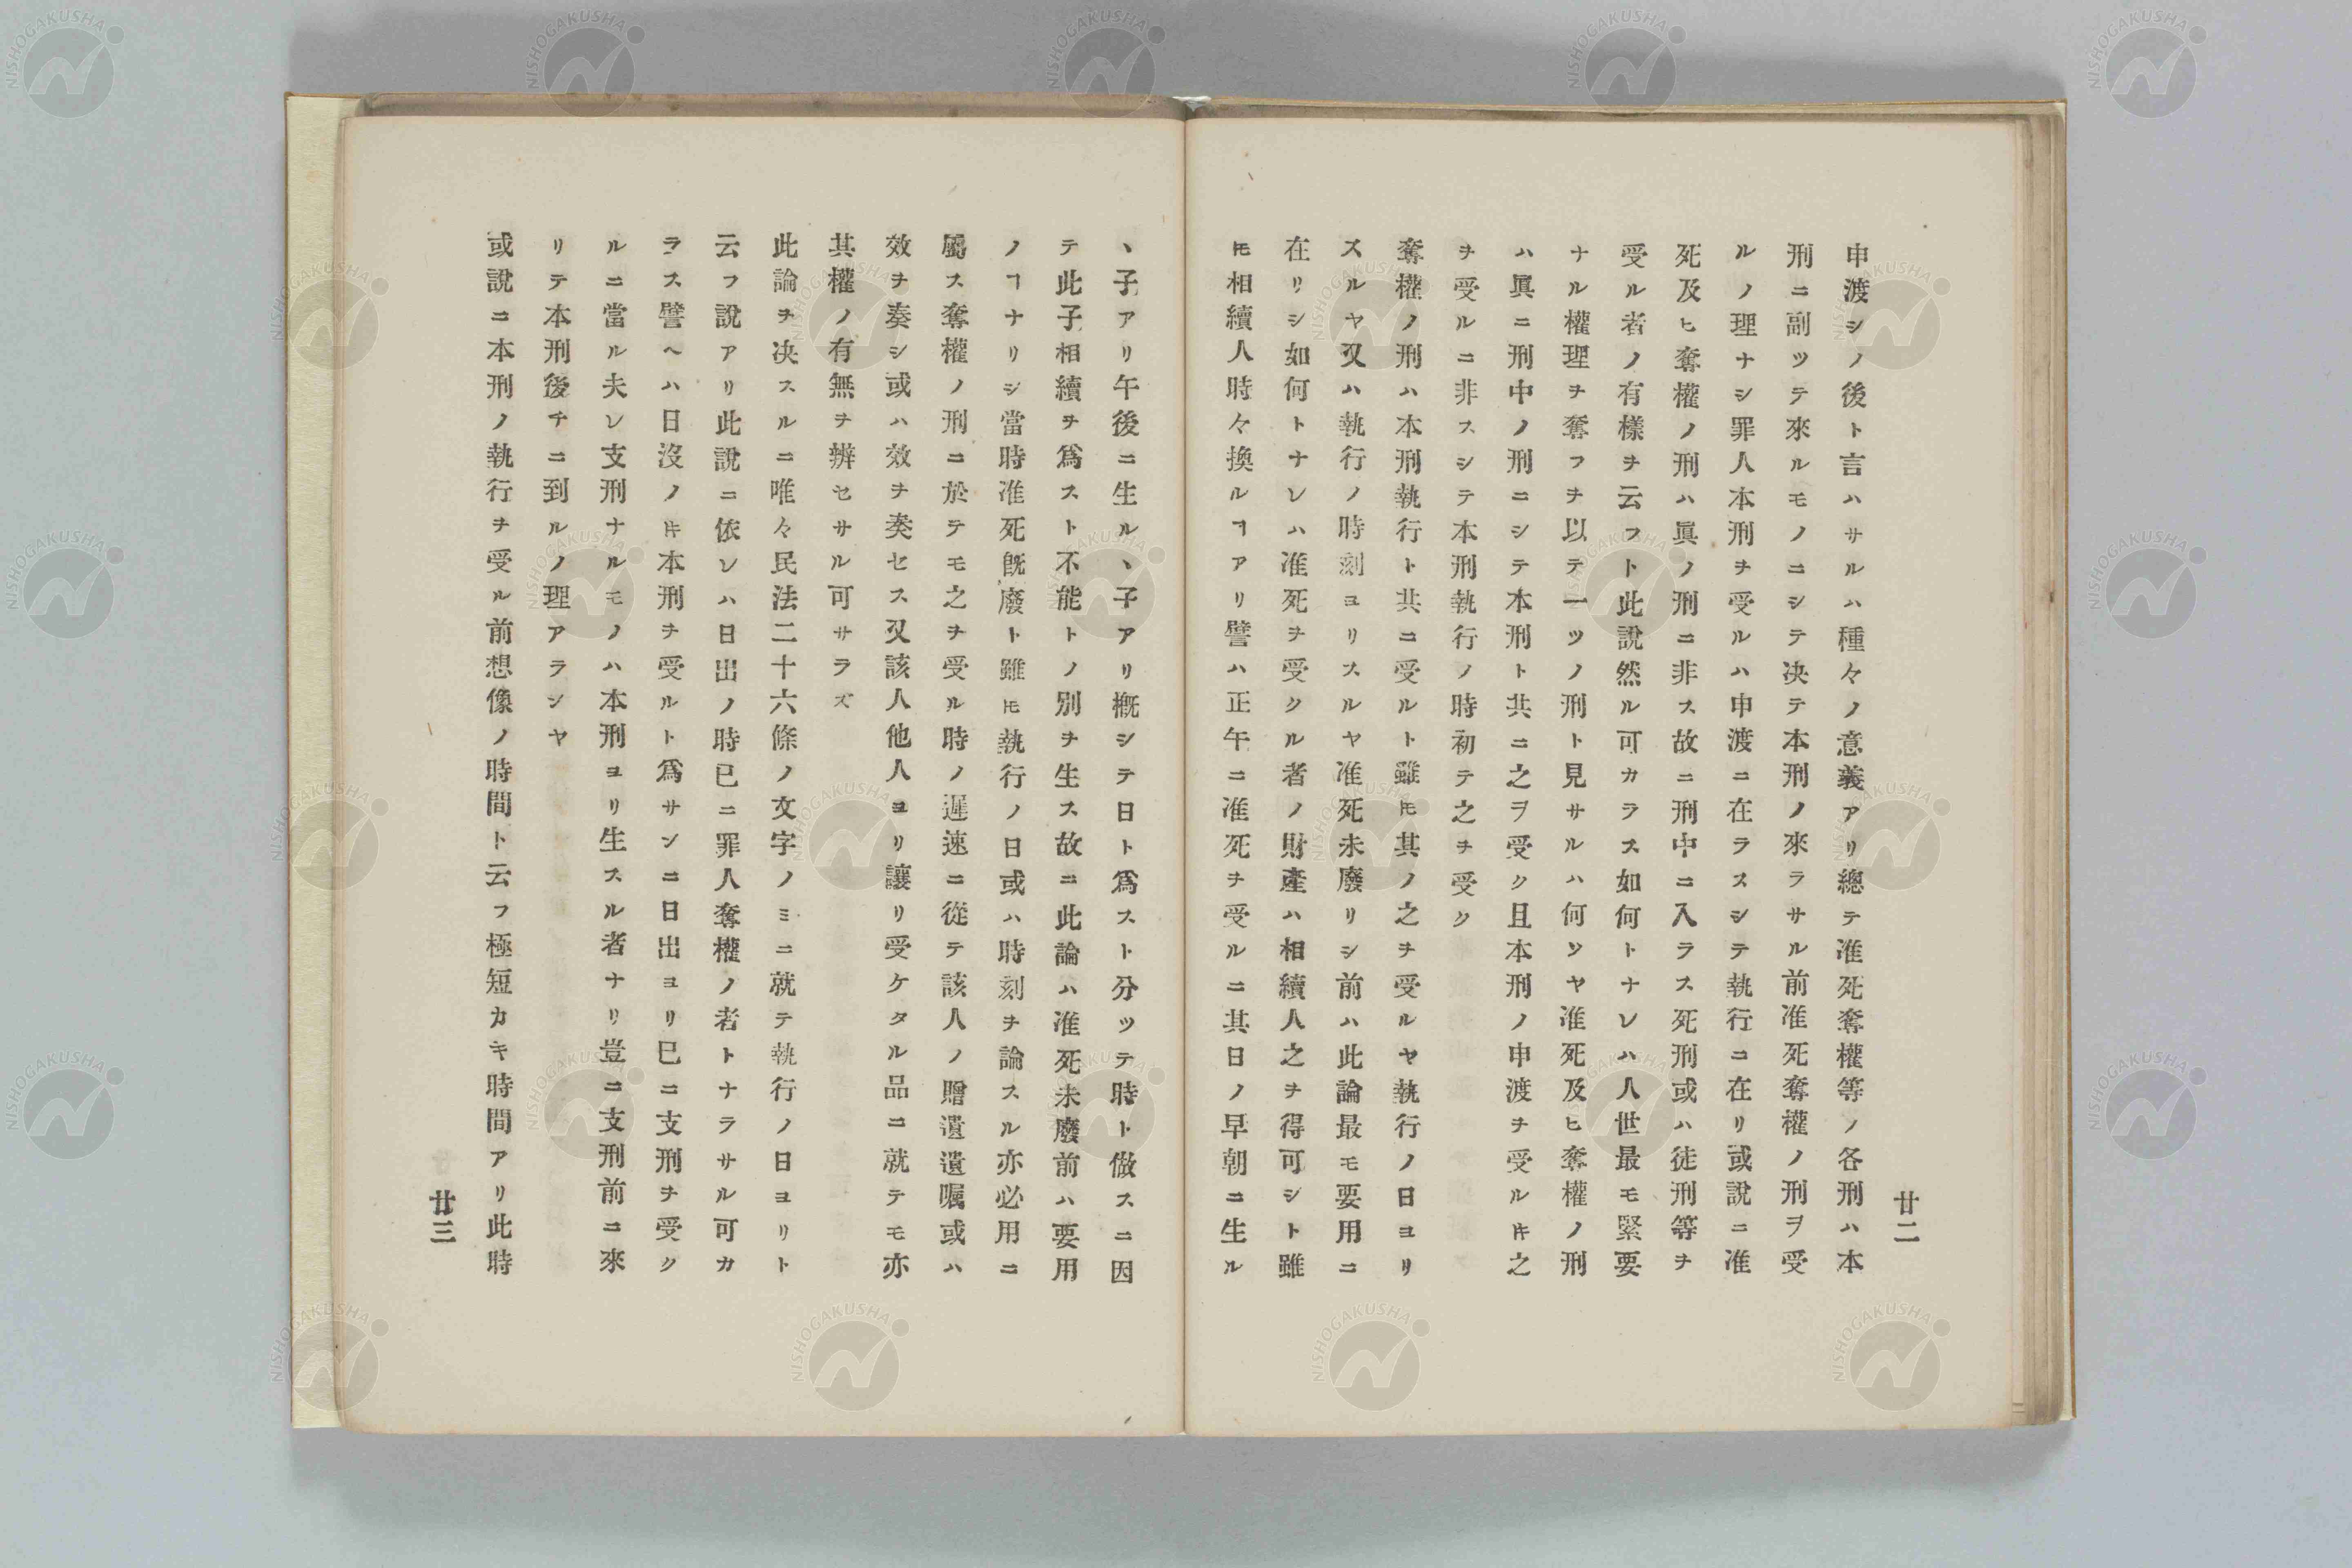 廿二
申渡シノ後ト言ハサルハ種々ノ意義アリ總テ准死奪權等ノ各刑ハ本
刑ニ副ツテ來ルモノニシテ决テ本刑ノ來ラサル前准死奪權ノ刑ヲ受
ルノ理ナシ罪人本刑ヲ受ルハ申渡ニ在ラスシテ執行ニ在リ或說ニ准
死及ヒ奪權ノ刑ハ眞ノ刑ニ非ス故ニ刑中ニ入ラス死刑或ハ徒刑等ヲ
受ル者ノ有樣ヲ云フト此說然ル可カラス如何トナレハ人世最モ緊要
ナル權理ヲ奪フヲ以テ一ツノ刑ト見サルハ何ソヤ准死及ヒ奪權ノ刑
ハ眞ニ刑中ノ刑ニシテ本刑ト共ニ之ヲ受ク且本刑ノ申渡ヲ受ルヰ之
ヲ受ルニ非スシテ本刑執行ノ時初テ之ヲ受ク
奪權ノ刑ハ本刑執行ト共ニ受ルト雖𪜈其ノ之ヲ受ルヤ執行ノ日ヨリ
スルヤ又ハ執行ノ時刻ヨリスルヤ准死未廢リシ前ハ此論最モ要用ニ
在リシ如何トナレハ准死ヲ受クル者ノ財產ハ相續人之ヲ得可シト雖
𪜈相續人時々換ルヿアリ譬ハ正午ニ准死ヲ受ルニ其日ノ早朝ニ生ル
ヽ子アリ午後ニ生ルヽ子アリ概シテ日ト爲スト分ツテ時ト做スニ因
テ此子相續ヲ爲スト不能トノ別ヲ生ス故ニ此論ハ准死未廢前ハ要用
ノヿナリシ當時准死旣廢ト雖𪜈執行ノ日或ハ時刻ヲ論スル亦必用ニ
屬ス奪權ノ刑ニ於テモ之ヲ受ル時ノ遲速ニ從テ該人ノ贈遺遺囑或ハ
效ヲ奏シ或ハ效ヲ奏セス又該人他人ヨリ讓リ受ケタル品ニ就テモ亦
其權ノ有無ヲ辨セサル可サラズ
此論ヲ决スルニ唯々民法二十六條ノ文字ノミニ就テ執行ノ日ヨリト
云フ說アリ此說ニ依レハ日出ノ時已ニ罪人奪權ノ者トナラサル可カ
ラス譬ヘハ日沒ノヰ本刑ヲ受ルト爲サンニ日出ヨリ巳ニ支刑ヲ受ク
ルニ當ル夫レ支刑ナルモノハ本刑ヨリ生スル者ナリ豈ニ支刑前ニ來
リテ本刑後チニ到ルノ理アランヤ
或說ニ本刑ノ執行ヲ受ル前想像ノ時間ト云フ極短カキ時間アリ此時
廿三